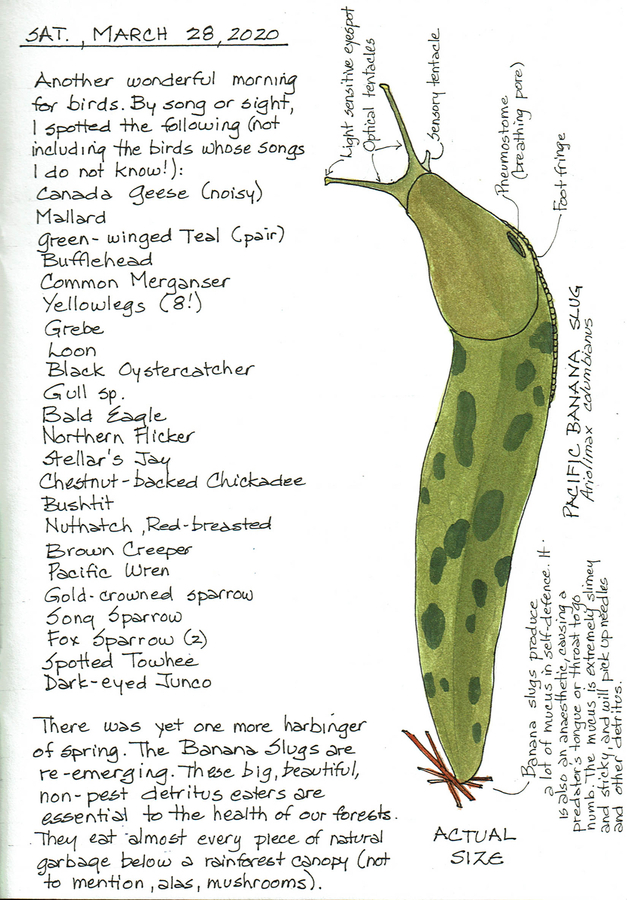 SAT., MARCH 28, 2020
Another wonderful morning
for birds. By song or sight,
I spotted the following (not
including the birds whose songs
I do not know!):
Canada Geese (noisy)
Mallard
Green-winged Teal (pair)
Bufflehead
Common Merganser
Yellowlegs (8!)
Grebe
Loon
Black Oystercatcher
Gull sp.
Bald Eagle
Northern Flicker
Stellar's Jay
Chestnut-backed Chickadee
Bushtit
Nuthatch, Red-breasted
Brown Creeper
Pacific Wren
Gold-crowned sparrow
Song Sparrow
Fox Sparrow (2)
Spotted Towhee
Dark-eyed Junco
There was yet one more harbinger
of spring. The Banana Slugs are
re-emerging. These big, beautiful,
non-pest detritus eaters are
essential to the health of our forests.
They eat almost every piece of natural
garbage below a rainforest canopy (not
to mention, alas, mushrooms).
Light sensitive eyespot
Optical tentacles
Sensory tentacle
Pneumostome
(breathing pore)
Foot fringe
PACIFIC BANANA SLUG
Ariolimax columbianus
Banana slugs produce
a lot of mucus in self-defence. It
is also an anaesthetic, causing a
predator's tongue or throat to go
numb. The mucus is extremely slimey
and sticky, and will pick up needles
and other detritus.
ACTUAL
SIZE